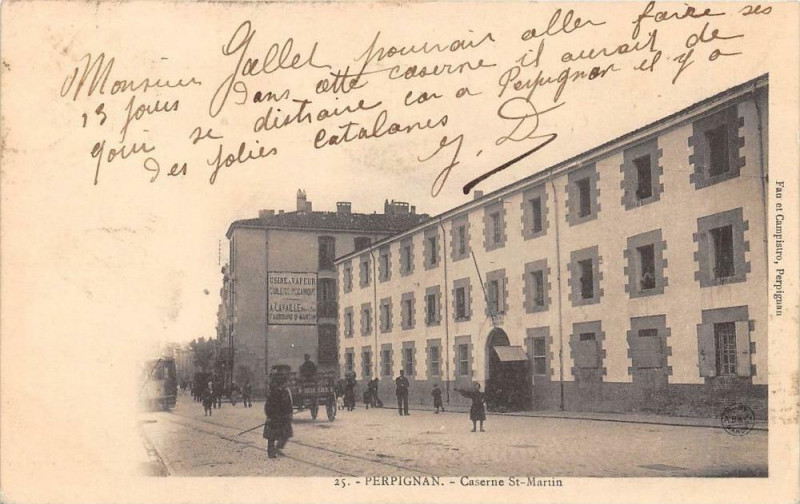 Monsieur Gallet pourrait aller faire ses
13 jours dans cette caserne il aurait de
quoi se distraire car a Perpignan il y a
des jolies catalanes
J. D.
USINE A VAPEUR
A. LAVAILLE
FAUBOURG St MARTIN
Fau et Campistro, Perpignan
25. - PERPIGNAN. - Caserne St-Martin